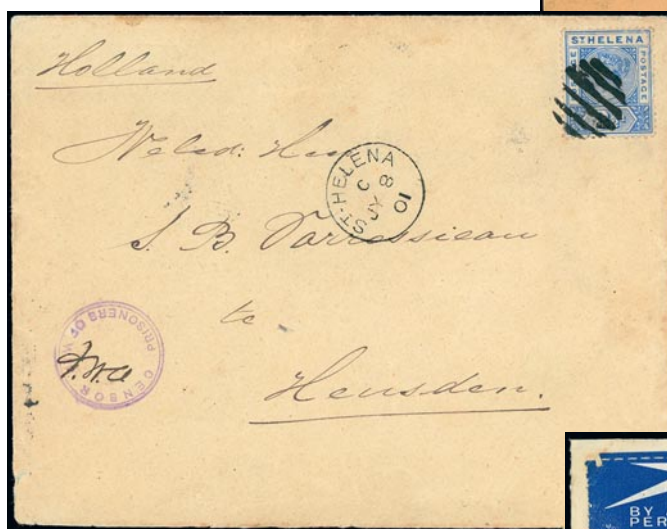 Holland
ST HELENA
POSTAGE
Weled: Heer
ST. HELENA
C
JY 8
01
S. B.
te
Heusden.
CENSOR
PRISONERS OF W
BY
PER